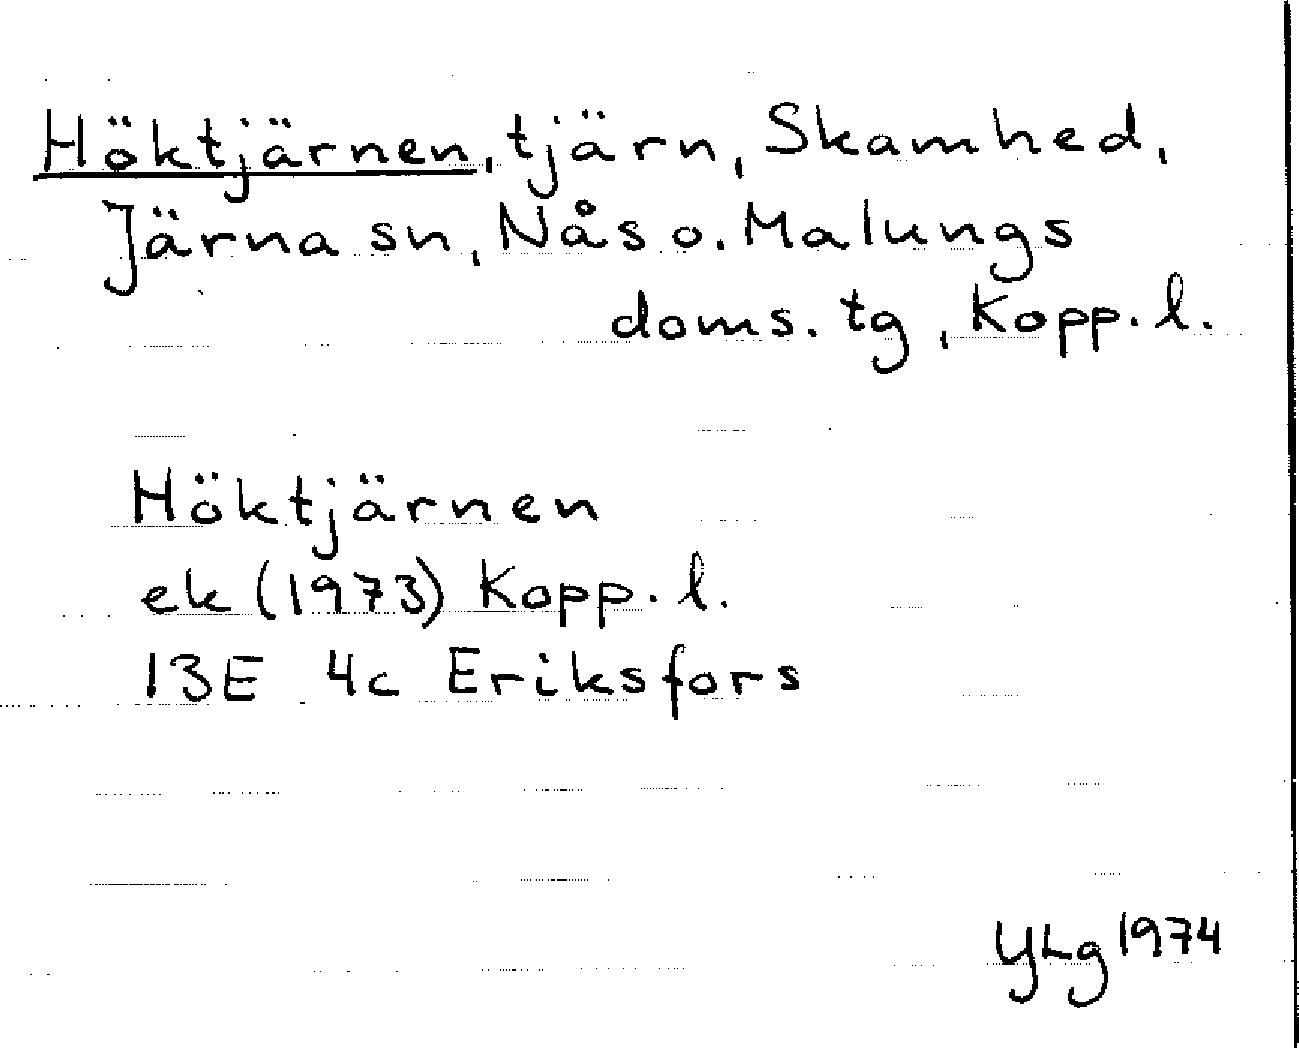 Höktjärnen, tjärn, Skamhed,
Järna sn, Nås o. Malungs
doms. tg, Kopp. l.
Höktjärnen
ek (1973) Kopp. l.
13E 4c Eriksfors
YLg 1974